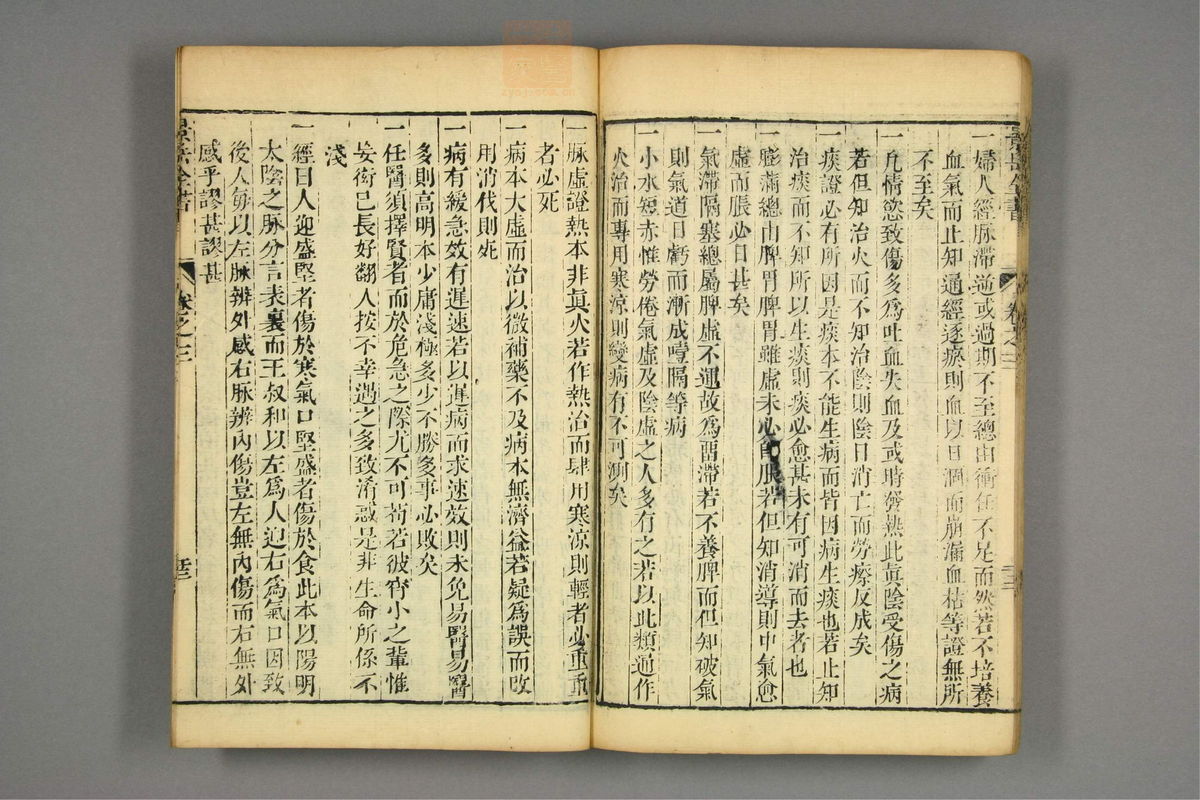 一婦人經脉滯逆或過期不至總由衝任不足而然若不培養
血氣而止知通經逐瘀則血以日涸而崩漏血枯等證無所
不至矣
一凡情慾致傷多爲吐血失血及或時發熱此眞陰受傷之病
若但知治火而不知治陰則陰日消亡而勞瘵反成矣
一痰證必有所因是痰本不能生病而皆因病生痰也若止知
治痰而不知所以生痰則痰必愈甚未有可消而去者也
一膨滿總由脾胃脾胃雖虛未必卽脹若但知消導則中氣愈
虛而脹必日甚矣
一氣滯隔塞總屬脾虛不運故爲畱滯若不養脾而但知破氣
則氣道日虧而漸成噎隔等病
一小水短赤惟勞倦氣虛及陰虛之人多有之若以此類通作
火治而專用寒涼則變病有不可測矣
一脉虛證熱本非眞火若作熱治而肆用寒涼則輕者必重重
者必死
一病本大虛而治以微補藥不及病本無濟益若疑爲誤而改
用消伐則死
一病有緩急效有遲速若以遲病而求速效則未免易醫易醫
多則高明本少庸淺極多少不勝多事必敗矣
一任醫須擇賢者而於危急之際尤不可苟若彼宵小之輩惟
妄衒己長好翻人按不幸遇之多致淆惑是非生命所係不
淺
一經曰人迎盛堅者傷於寒氣口堅盛者傷於食此本以陽明
太陰之脉分言表裏而王叔和以左爲人迎右爲氣口因致
後人每以左脉辨外感右脉辨內傷豈左無內傷而右無外
感乎謬甚謬甚
景岳全書
卷之二
景岳全書
卷之二
zysj.com.cn